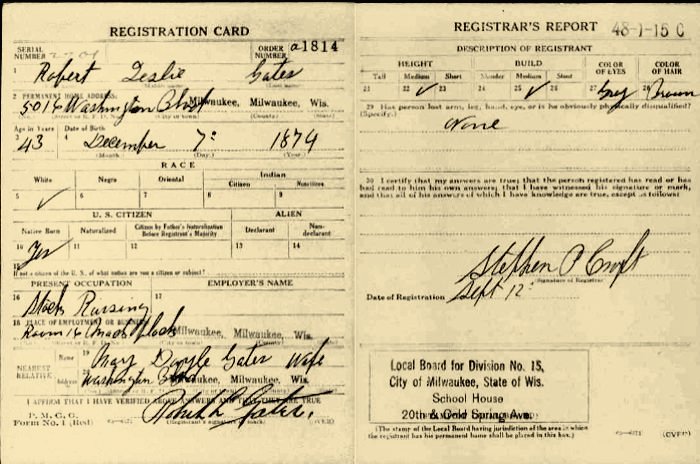 REGISTRATION CARD
SERIAL NUMBER
ORDER NUMBER a1814
1 Robert Leslie Gates
2 PERMANENT HOME ADDRESS:
5018 Washington Blvd Milwaukee, Milwaukee, Wis.
Age in Years Date of Birth
3 43 4 December 7 1874
(Month.) (Day.) (Year.)
RACE
White Negro Oriental Indian
Citizen Noncitizen
5 ✓ 6 7 8 9
U. S. CITIZEN ALIEN
Native Born Naturalized Citizen by Father's Naturalization Before Registrant's Majority Declarant Non-declarant
10 Yes 11 12 13 14
15
If not a citizen of the U. S., of what nation are you a citizen or subject?
PRESENT OCCUPATION EMPLOYER'S NAME
16 Stock Raising 17
18 PLACE OF EMPLOYMENT OR BUSINESS:
Room 16 Mack Block Milwaukee, Milwaukee, Wis.
NEAREST RELATIVE
Name 19 Mary Doyle Gates Wife
Address 20 Washington Blvd Milwaukee, Milwaukee, Wis.
I AFFIRM THAT I HAVE VERIFIED ABOVE ANSWERS AND THAT THEY ARE TRUE
P. M. G. O.
Form No. 1 (Red)
(Registrant's signature or mark)
REGISTRAR'S REPORT 48-1-15 C
DESCRIPTION OF REGISTRANT
HEIGHT BUILD COLOR OF EYES COLOR OF HAIR
Tall Medium Short Slender Medium Stout
21 22 ✓ 23 24 25 ✓ 26 27 Grey 28 Brown
29 Has person lost arm, leg, hand, eye, or is he obviously physically disqualified?
(Specify.)
None
30 I certify that my answers are true; that the person registered has read or has
had read to him his own answers; that I have witnessed his signature or mark,
and that all of his answers of which I have knowledge are true, except as follows:
Stephen P Croft
(Signature of Registrar)
Date of Registration Sept 12
Local Board for Division No. 15,
City of Milwaukee, State of Wis.
School House
20th & Cold Spring Ave.
(The stamp of the Local Board having jurisdiction of the area in which
the registrant has his permanent home shall be placed in this box.)
(OVER)